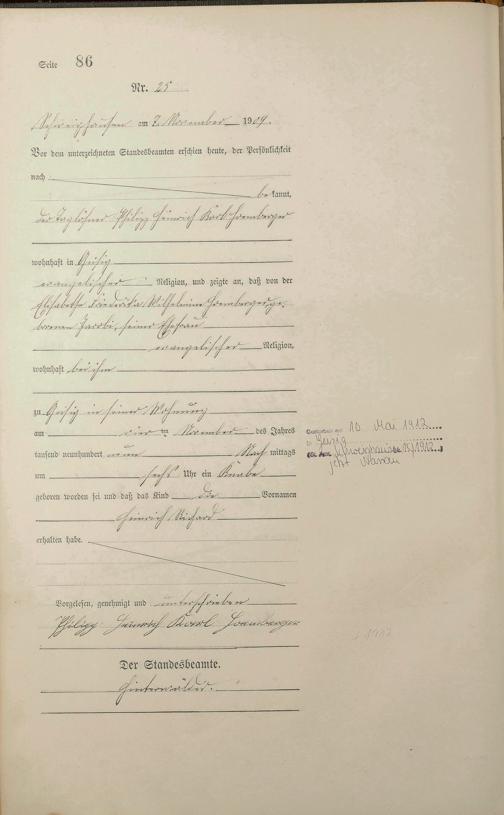 Seite 86
Nr. 25
Schweighausen am 7. November 1909.
Vor dem unterzeichneten Standesbeamten erschien heute, der Persönlichkeit
nach
be kannt,
der Taglöhner Philipp Heinrich Karl
wohnhaft in Geisig
evangelischer Religion, und zeigte an, daß von der
Elisabethe Friederike Wilhelmine ge-
borenen Jacobi, seiner Ehefrau
evangelischer Religion,
wohnhaft bei ihm
zu Geisig in seiner Wohnung
am vier ten November des Jahres
tausend neunhundert neun Nach mittags
um sechs Uhr ein Knabe
geboren worden sei und daß das Kind die Vornamen
Heinrich Richard
erhalten habe.
Vorgelesen, genehmigt und unterschrieben
Philipp Heinrich Karl
Der Standesbeamte.
Hinterwälder.
10. Mai 1912